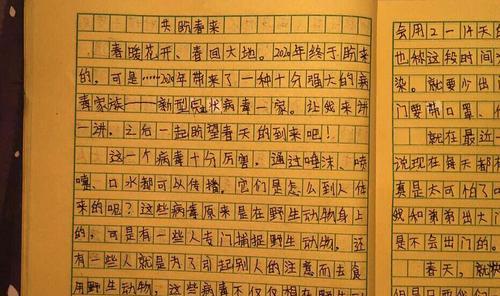 共盼春来
春暖花开、春回大地。2020年终于盼来
的。可是……2020年带来了一种十分强大的病
毒家族——新型冠状病毒一家。让我来讲
一讲。之后一起盼望春天的到来吧！
这一个病毒十分厉害。通过唾沫、喷
嚏、口水都可以传播。它们是怎么到人体
来的呢？这些病毒原来是在野生动物身上
的，可是有一些人专门捕捉野生动物。还
有一些人就是为了引起别人的注意而去食
用野生动物。这些病毒不仅仅相在野生
会用2－14天的
也被这段时间
染。就要少出
门要带口罩、
就在最近一
说现在每天都
真是太可怕了
我和弟弟出大门
是不会出门的。
春天，就
但是只要我们